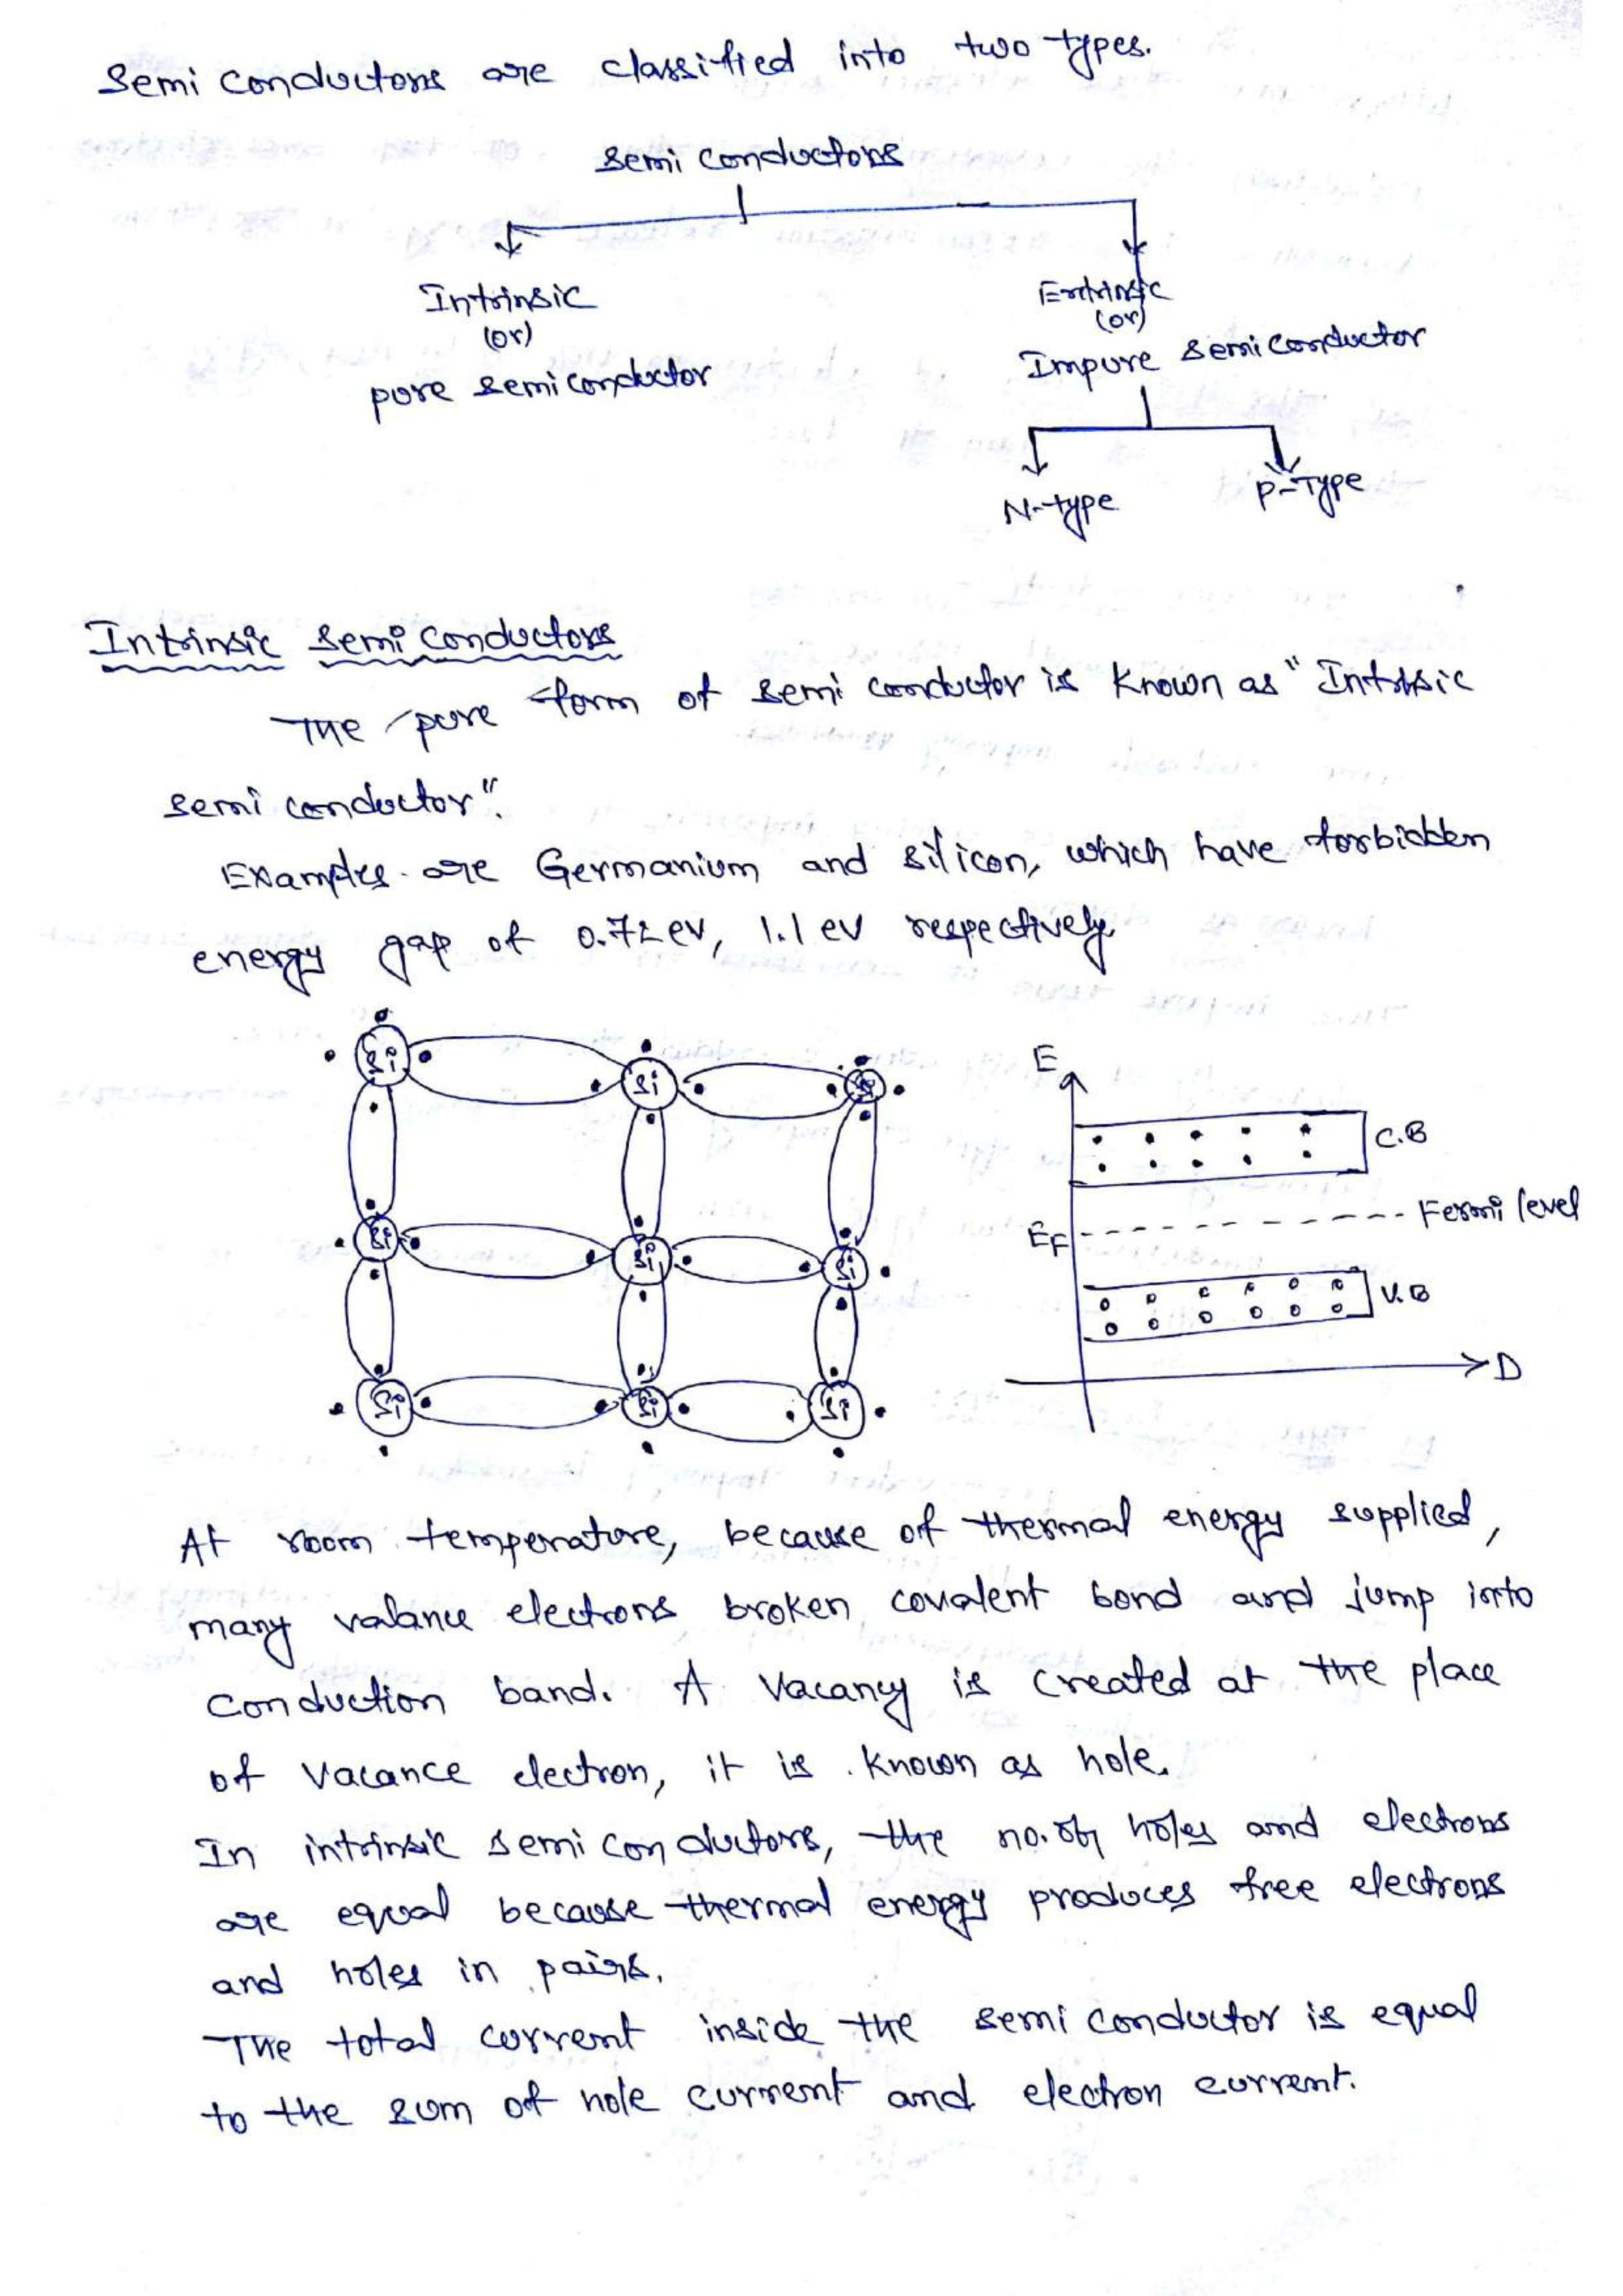 Semi Conductors are classified into two types.
Semi Conductors
Intrinsic
(or)
pure semiconductor
Extrinsic
(or)
Impure semiconductor
N-type
P-Type
Intrinsic Semi Conductors
The pure form of semi conductor is known as "Intrinsic
semi conductor".
Examples are Germanium and silicon, which have forbidden
energy gap of 0.72 ev, 1.1 ev respectively.
Si
Si
Si
Si
Si
Si
Si
Si
Si
E
C.B
Fermi level
EF
V.B
D
At room temperature, because of thermal energy supplied,
many valance electrons broken covalent bond and jump into
Conduction band. A Vacancy is created at the place
of Vacance electron, it is known as hole.
In intrinsic semi conductors, the no. of holes and electrons
are equal because thermal energy produces free electrons
and holes in pairs.
The total current inside the semi conductor is equal
to the sum of hole current and electron current.